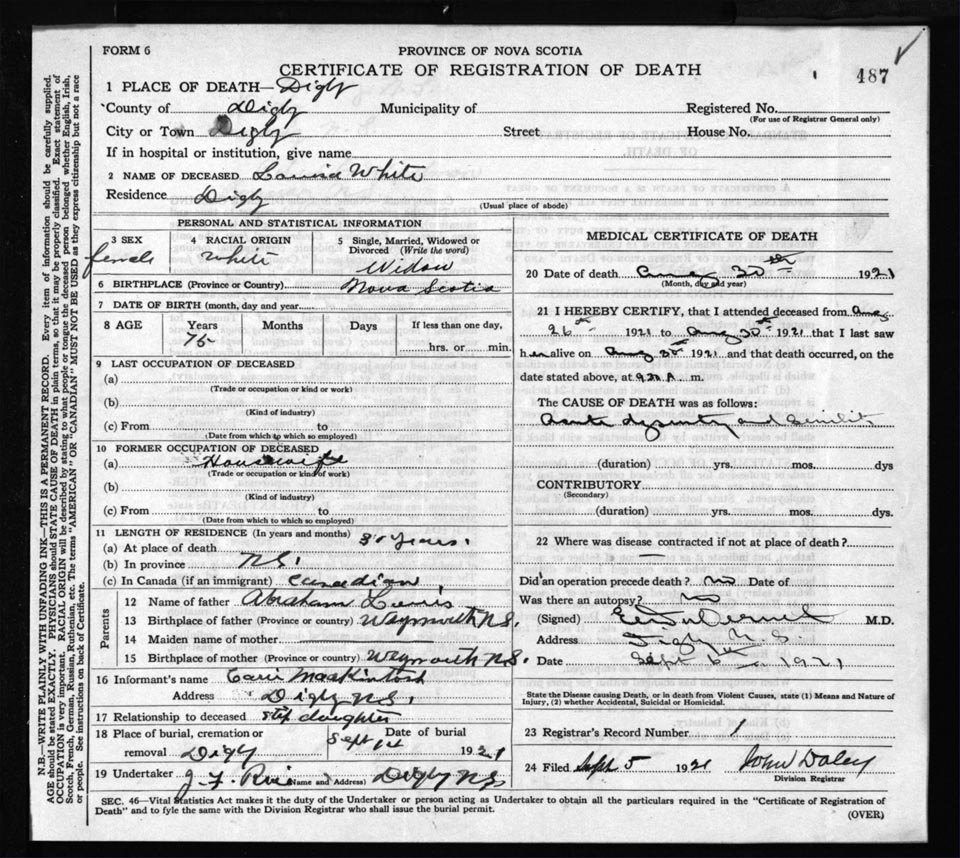 FORM 6
PROVINCE OF NOVA SCOTIA
CERTIFICATE OF REGISTRATION OF DEATH
487
1 PLACE OF DEATH—Digby
County of Digby Municipality of
Registered No.
(For use of Registrar General only)
City or Town Digby Street House No.
If in hospital or institution, give name
2 NAME OF DECEASED Louisa White
Residence Digby
(Usual place of abode)
PERSONAL AND STATISTICAL INFORMATION
3 SEX female
4 RACIAL ORIGIN White
5 Single, Married, Widowed or Divorced (Write the word) Widow
6 BIRTHPLACE (Province or Country) Nova Scotia
7 DATE OF BIRTH (month, day and year)
8 AGE Years Months Days If less than one day,
75 hrs. or min.
9 LAST OCCUPATION OF DECEASED
(a)
(Trade or occupation or kind or work)
(b)
(Kind of industry)
(c) From to
(Date from which to which so employed)
10 FORMER OCCUPATION OF DECEASED
(a) Housewife
(Trade or occupation or kind of work)
(b)
(Kind of industry)
(c) From to
(Date from which to which so employed)
11 LENGTH OF RESIDENCE (In years and months)
(a) At place of death 30 years.
(b) In province N.S.
(c) In Canada (if an immigrant) Canadian
Parents
12 Name of father Abraham Lewis
13 Birthplace of father (Province or country) Weymouth N.S.
14 Maiden name of mother
15 Birthplace of mother (Province or country) Weymouth N.S.
16 Informant's name MacKintosh
Address Digby N.S.
17 Relationship to deceased step daughter
18 Place of burial, cremation or removal Digby
Date of burial Sept 1st 1921
19 Undertaker J. F. Rice (Name and Address) Digby N.S.
MEDICAL CERTIFICATE OF DEATH
20 Date of death Aug 30th 1921
(Month, day and year)
21 I HEREBY CERTIFY, that I attended deceased from Aug
26th 1921 to Aug 30th 1921 that I last saw
her alive on Aug 30th 1921 and that death occurred, on the
date stated above, at m.
The CAUSE OF DEATH was as follows:
Acute dysentry and Senility
(duration) yrs. mos. dys
CONTRIBUTORY
(Secondary)
(duration) yrs. mos. dys.
22 Where was disease contracted if not at place of death?
—
Did an operation precede death? no Date of
Was there an autopsy? no
(Signed) M.D.
Address Digby N.S.
Date Sept 6 1921
State the Disease causing Death, or in death from Violent Causes, state (1) Means and Nature of
Injury, (2) whether Accidental, Suicidal or Homicidal.
23 Registrar's Record Number
24 Filed Sept 5 1921 John Daley
Division Registrar
SEC. 46—Vital Statistics Act makes it the duty of the Undertaker or person acting as Undertaker to obtain all the particulars required in the "Certificate of Registration of
Death" and to fyle the same with the Division Registrar who shall issue the burial permit.
(OVER)
N.B.—WRITE PLAINLY WITH UNFADING INK—THIS IS A PERMANENT RECORD. Every item of information should be carefully supplied.
AGE should be stated EXACTLY. PHYSICIANS should STATE CAUSE OF DEATH in plain terms, so that it may be properly classified. Exact statement of
OCCUPATION is very important. RACIAL ORIGIN will be described by stating to what people or tongue the deceased person belonged whether English, Irish,
Scotch, French, German, Russian, Ruthenian, etc. The terms "AMERICAN" OR "CANADIAN" MUST NOT BE USED as they express citizenship but not a race
or people. See instructions on back of Certificate.